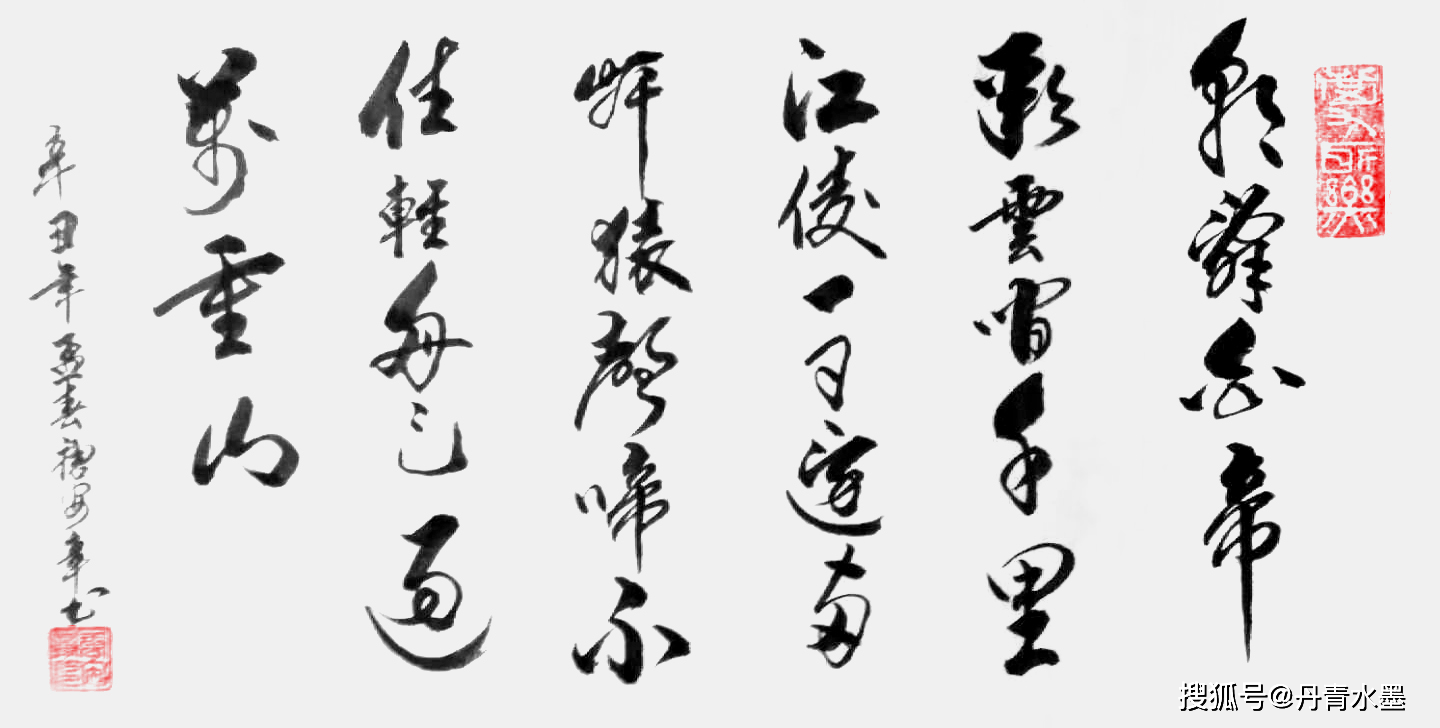 朝辭白帝
彩雲間千里
江陵一日還兩
岸猿聲啼不
住輕舟已過
萬重山
辛丑年孟春
搜狐号@丹青水墨